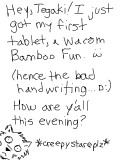 Hey, Tegaki! I just
got my first
tablet, a Wacom
Bamboo Fun. :3
(hence the bad
handwriting... D:)
How are y'all
this evening?
*creepystareplz*